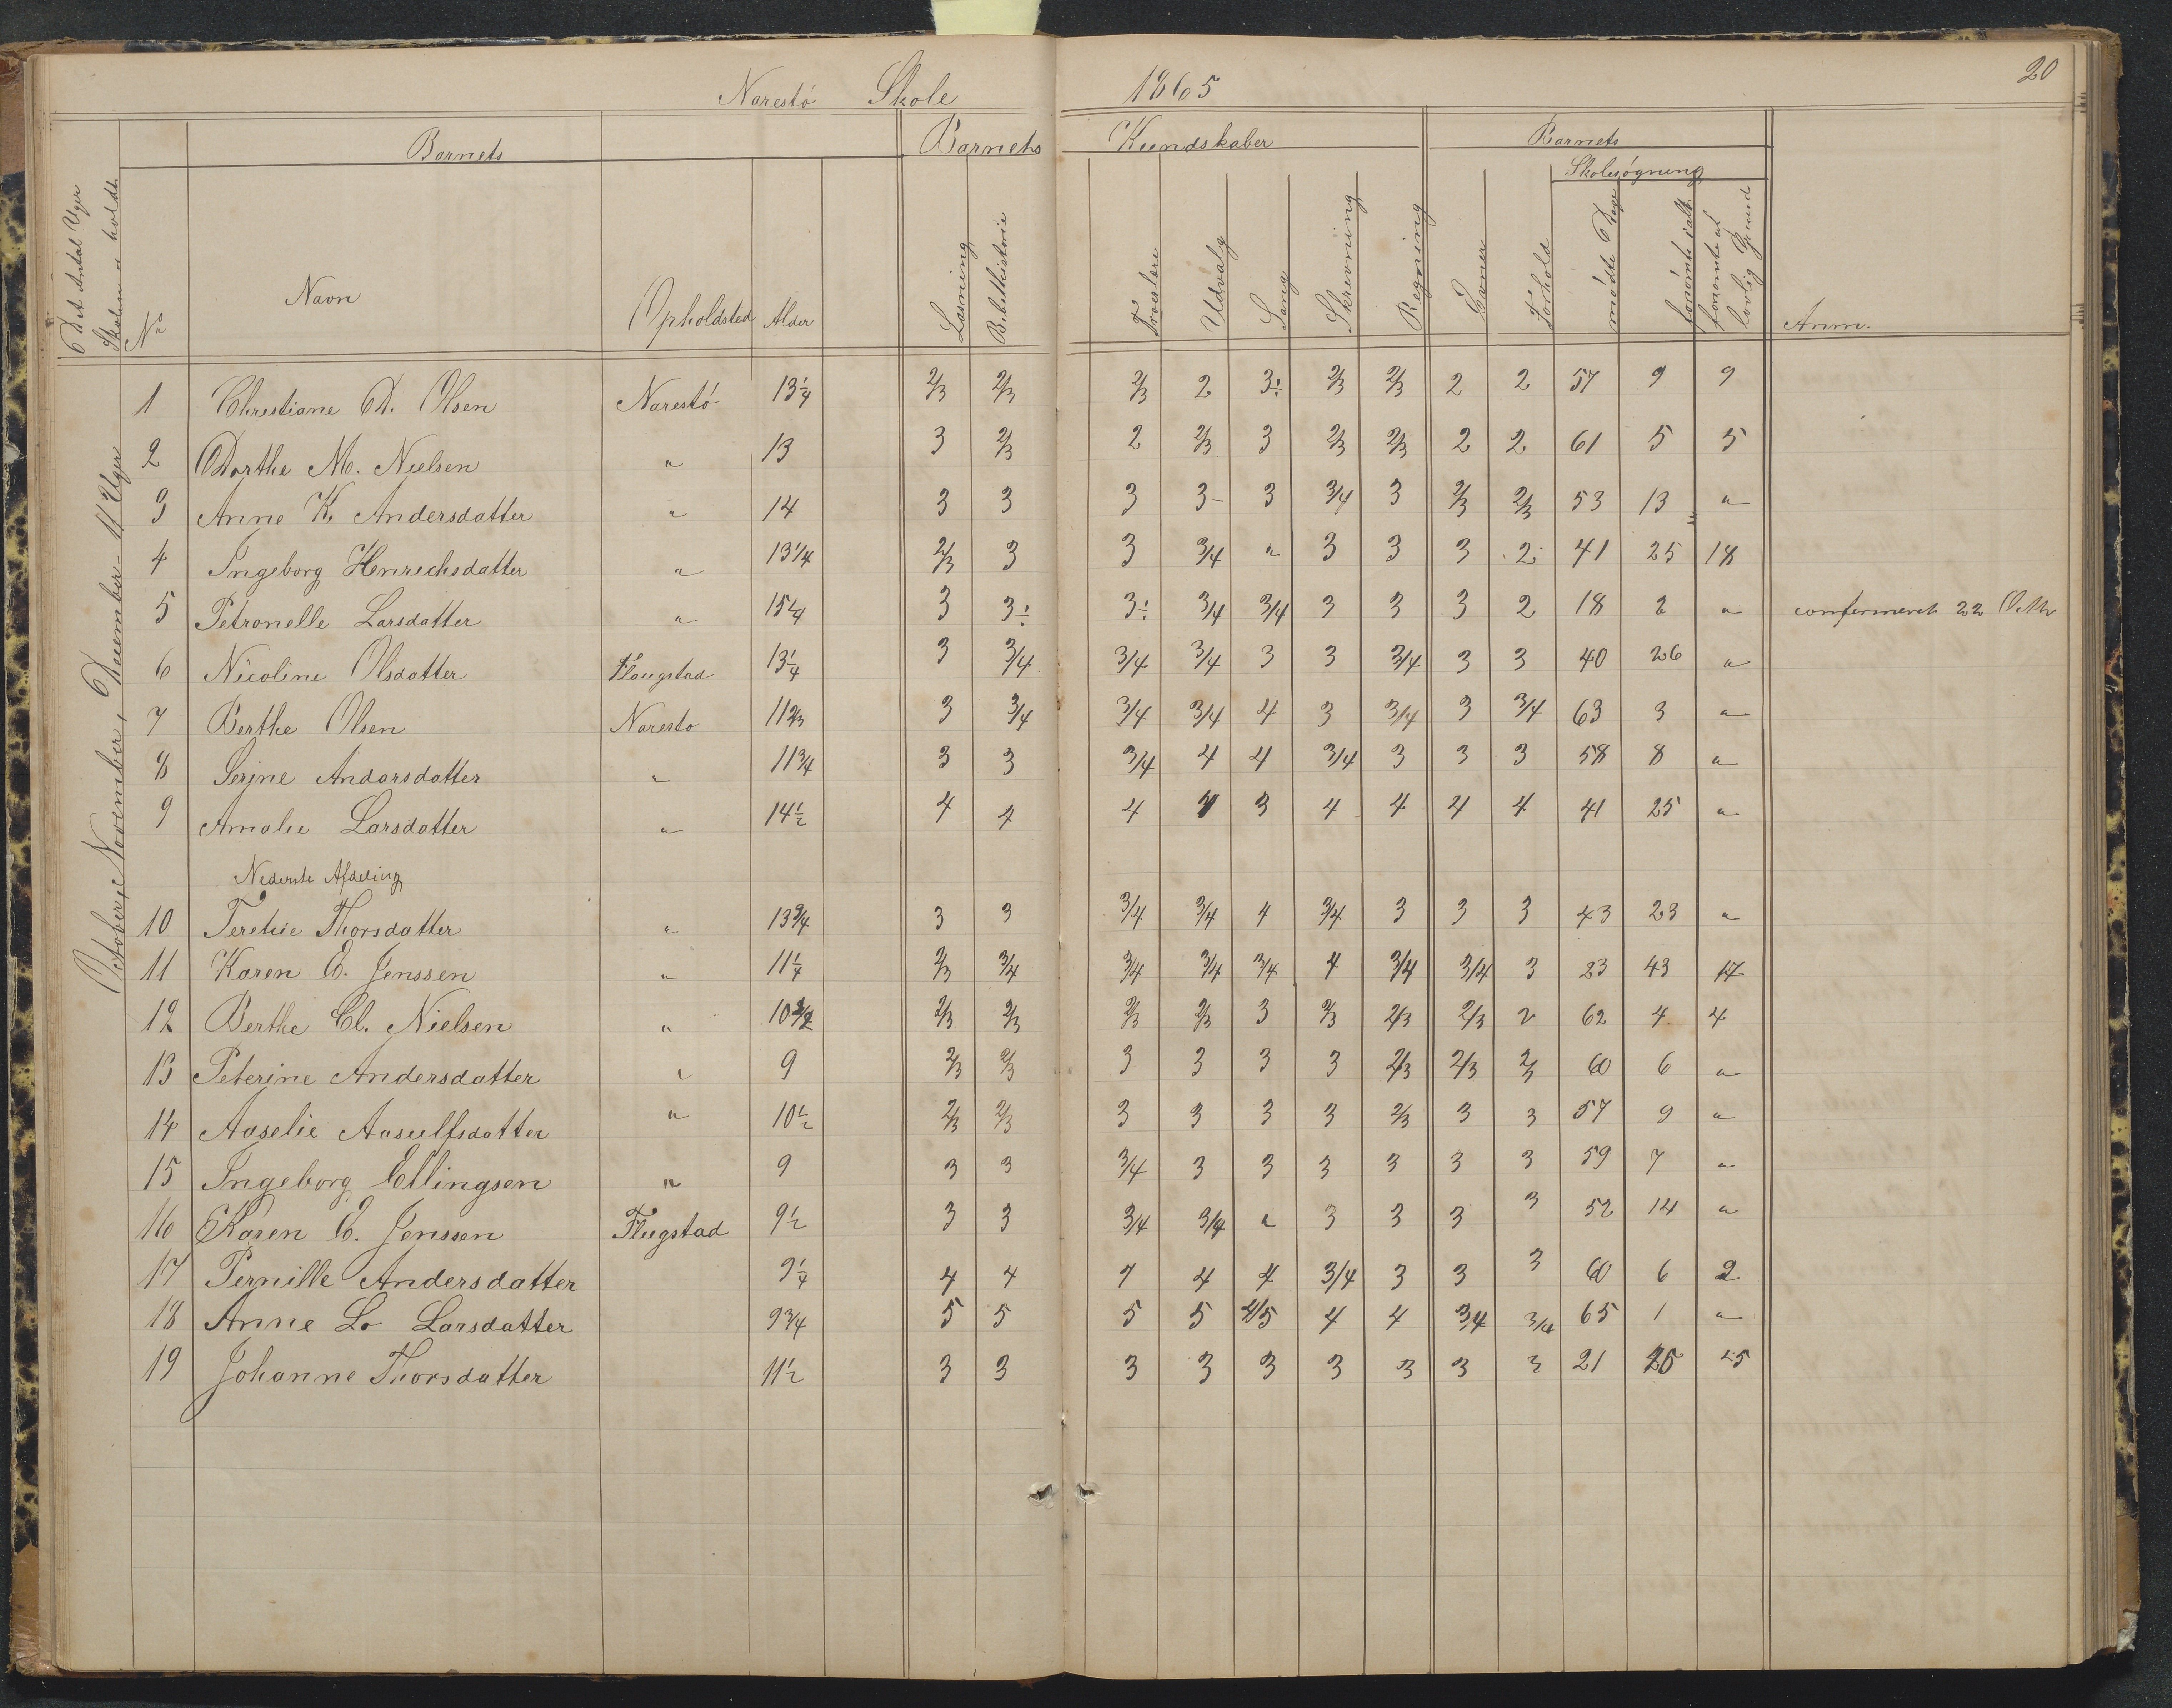 Narestö Skole 1865
20
Barnets Barnets Kundskaber Barnets
Skolesøgning
Det Antal Uger
Skolen er holdt
No Navn Opholdsted Alder Læsning Bibelhistorie Troeslære Udvalg Sang Skrivning Regning Evner Forhold mødte Dage forsømte ialt forsømte af lovlig Grund Anm.
October, November, December - 11 Uger
1 Christiane D. Olsen Narestö 13 1/4 2/3 2/3 2/3 2 3÷ 2/3 2/3 2 2 57 9 9
2 Dorthe M. Nielsen " 13 3 2/3 2 2/3 3 2/3 2/3 2 2 61 5 5
3 Anne K. Andersdatter " 14 3 3 3 3- 3 3/4 3 2/3 2/3 53 13 "
4 Ingeborg Henrichsdatter " 13 1/4 2/3 3 3 3/4 " 3 3 3 2 41 25 18
5 Petronelle Larsdatter " 15 1/4 3 3÷ 3÷ 3/4 3/4 3 3 3 2 18 2 " confirmeret 22 Octbr
6 Nicoline Olsdatter Flougstad 13 1/4 3 3/4 3/4 3/4 3 3 3/4 3 3 40 26 "
7 Berthe Olsen Naresto 11 2/3 3 3/4 3/4 3/4 4 3 3/4 3 3/4 63 3 "
8 Serine Andersdatter " 11 3/4 3 3 3/4 4 4 3/4 3 3 3 58 8 "
9 Amalie Larsdatter " 14 1/2 4 4 4 4 3 4 4 4 4 41 25 "
Nederste Afdeling
10 Terethie Thorsdatter " 13 3/4 3 3 3/4 3/4 4 3/4 3 3 3 43 23 "
11 Karen E. Jenssen " 11 1/4 2/3 3/4 3/4 3/4 3/4 4 3/4 3/4 3 23 43 17
12 Berthe Cl. Nielsen " 10 2/3 2/3 2/3 2/3 3 2/3 2/3 2/3 2 62 4 4
13 Peterine Andersdatter " 9 2/3 2/3 3 3 3 3 2/3 2/3 2/3 60 6 "
14 Aaselie Aasulfsdatter " 10 1/2 2/3 2/3 3 3 3 3 2/3 3 3 57 9 "
15 Ingeborg Ellingsen " 9 3 3 3/4 3 3 3 3 3 3 59 7 "
16 Karen C. Jenssen Flugstad 9 1/2 3 3 3/4 3/4 " 3 3 3 3 52 14 "
17 Pernille Andersdatter 9 1/4 4 4 4 4 4 3/4 3 3 3 60 6 2
18 Anne Lo Larsdatter 9 3/4 5 5 5 5 4/5 4 4 3/4 3/4 65 1 "
19 Johanne Thorsdatter 11 1/2 3 3 3 3 3 3 3 3 3 21 25 25